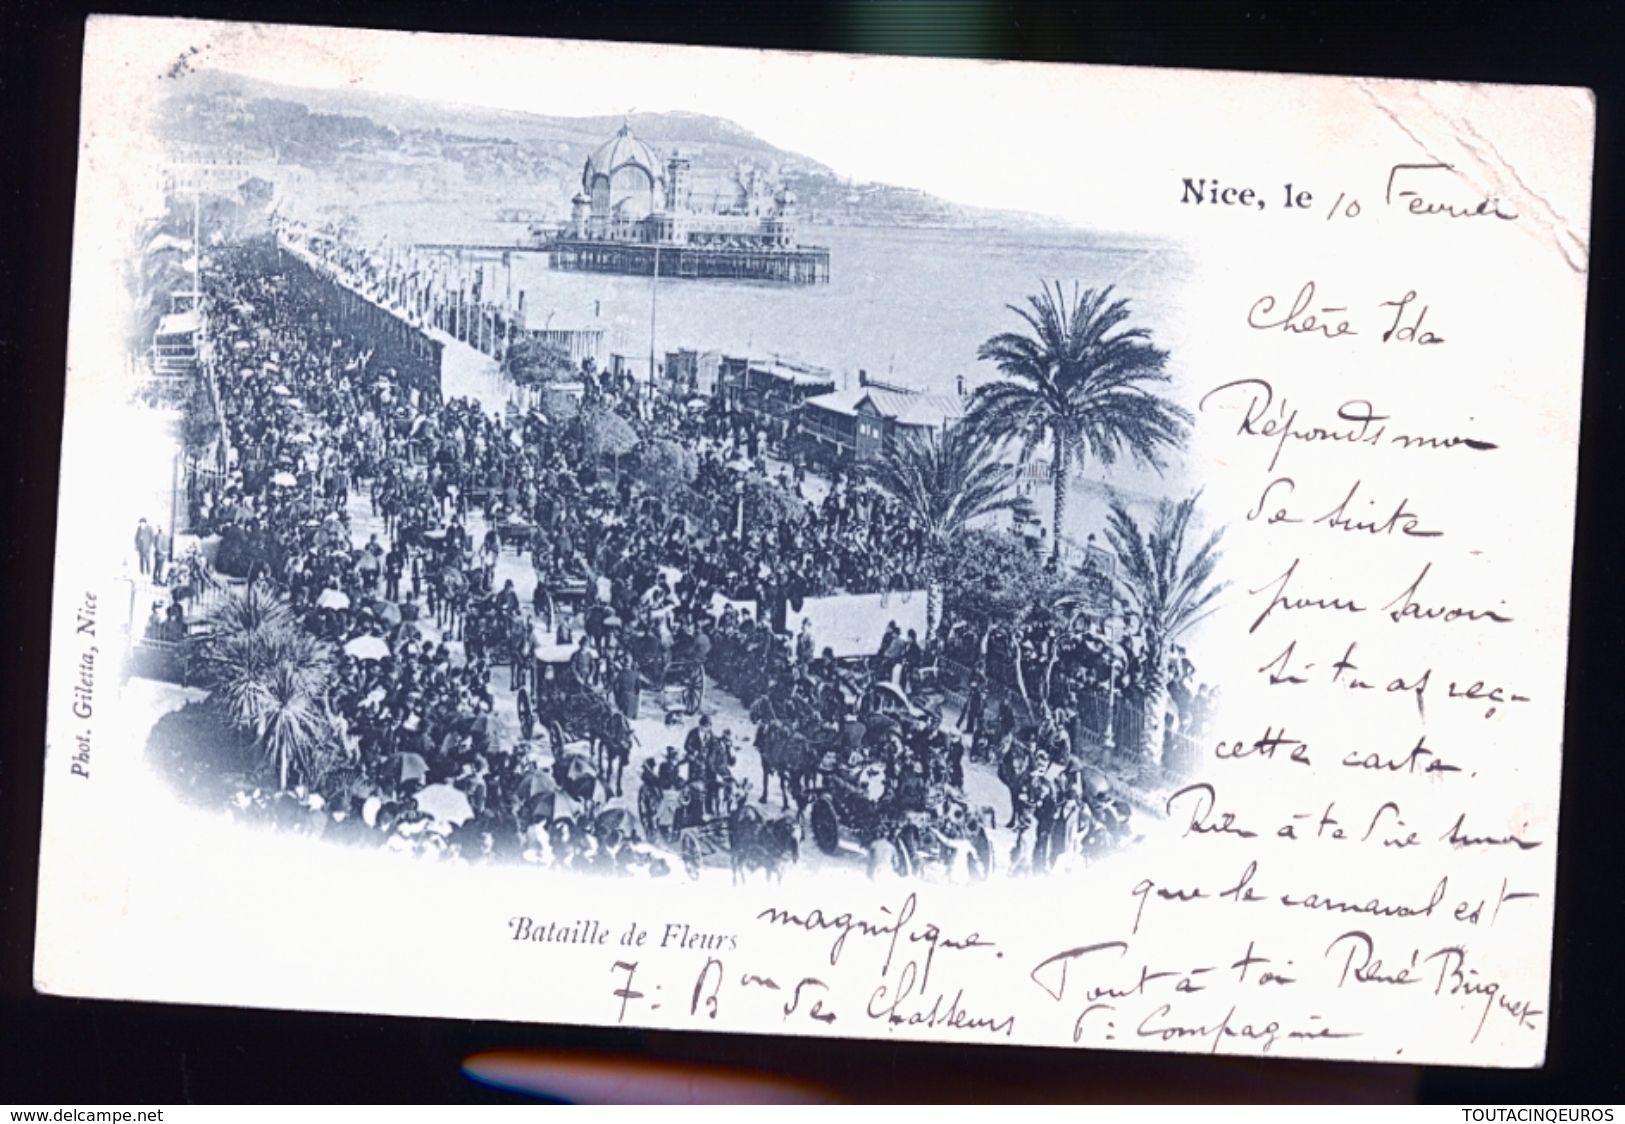 Nice, le 10 Février
Chère Ida
Réponds moi
de suite
pour savoir
si tu as reçu
cette carte.
Rien à te dire sinon
que le carnaval est
magnifique.
Tout à toi René Biquet
7: Bon de Chasseurs 6: Compagnie
Bataille de Fleurs
Phot. Giletta, Nice
delcampe.net
TOUTACINQEUROS